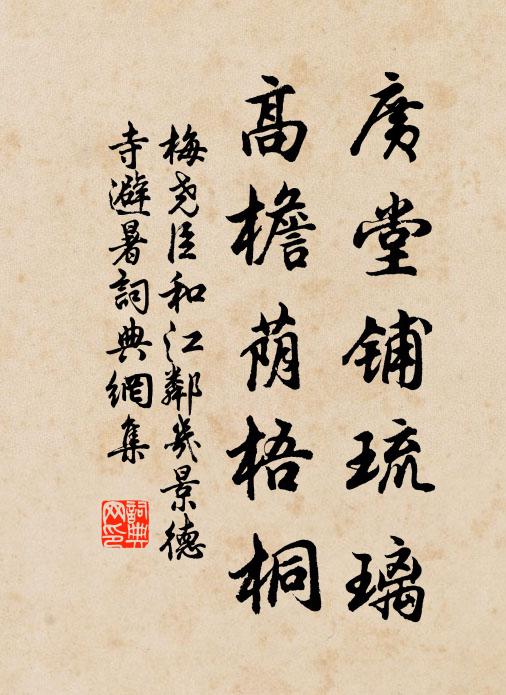 廣堂鋪琉璃
高檐荫梧桐
梅尧臣和江鄰幾景德
寺避暑詞典網集
詞典
网印